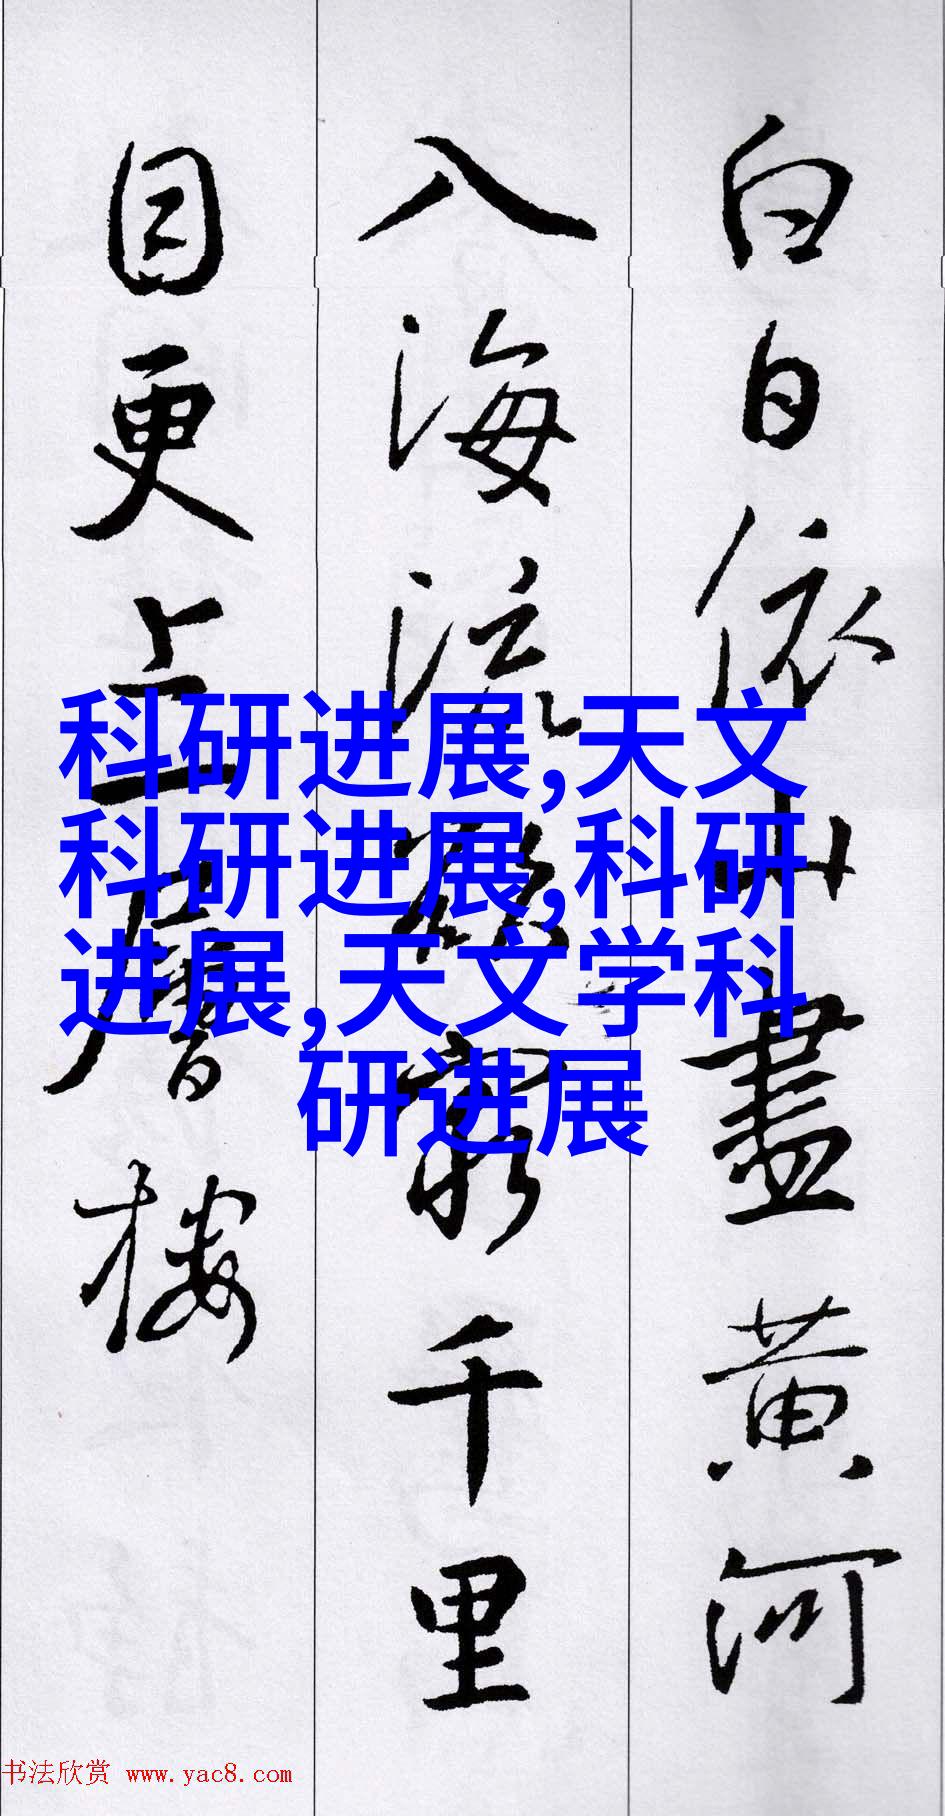 白日依山盡黄河
入海流欲窮千里
目更上一層樓
科研进展,天文
科研进展,科研
进展,天文学科
研进展
书法欣赏 www.yac8.com